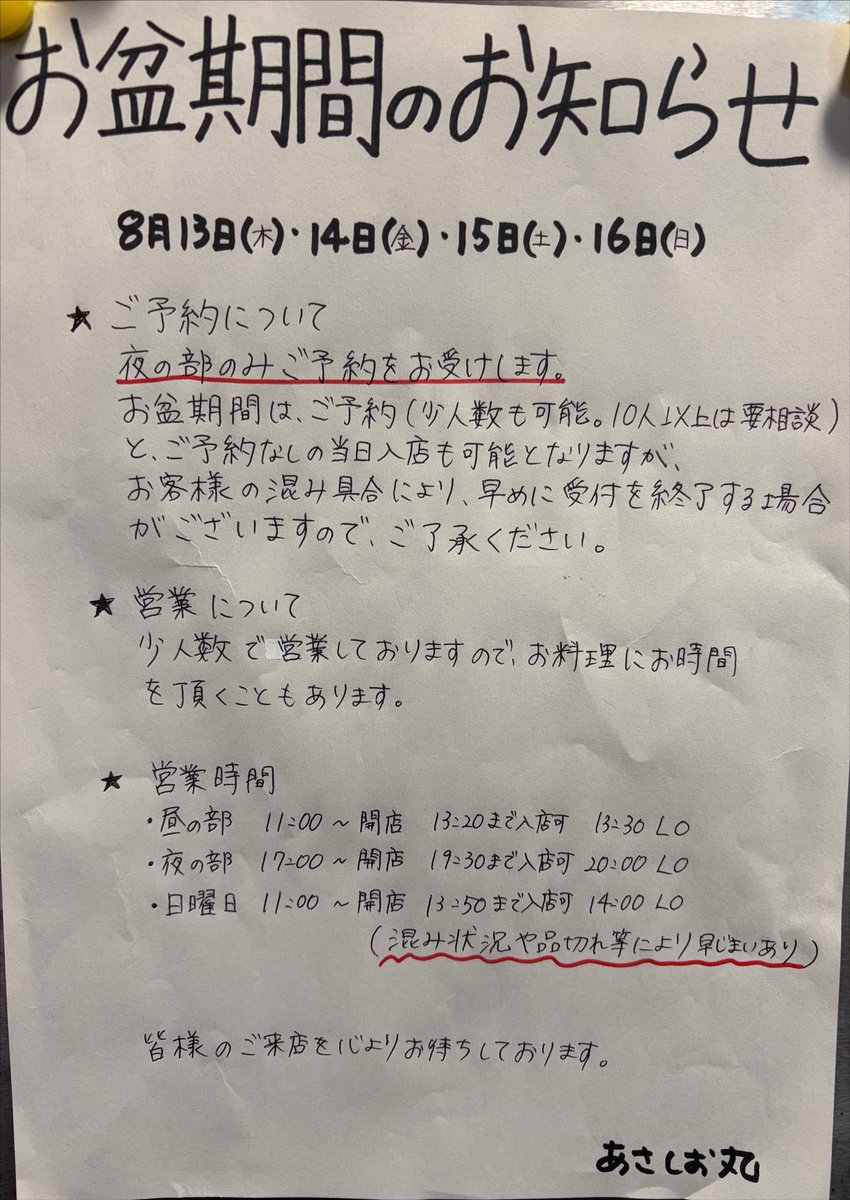 お盆期間のお知らせ
8月13日(木)・14日(金)・15日(土)・16日(日)
★ ご予約について
夜の部のみご予約をお受けします。
お盆期間は、ご予約(少人数も可能。10人以上は要相談)
と、ご予約なしの当日入店も可能となりますが、
お客様の混み具合により、早めに受付を終了する場合
がございますので、ご了承ください。
★ 営業について
少人数で営業しておりますので、お料理にお時間
を頂くこともあります。
★ 営業時間
・昼の部 11:00 ~ 開店 13:20まで入店可 13:30 LO
・夜の部 17:00 ~ 開店 19:30まで入店可 20:00 LO
・日曜日 11:00 ~ 開店 13:50まで入店可 14:00 LO
(混み状況や品切れ等により早じまいあり)
皆様のご来店を心よりお待ちしております。
あさしお丸